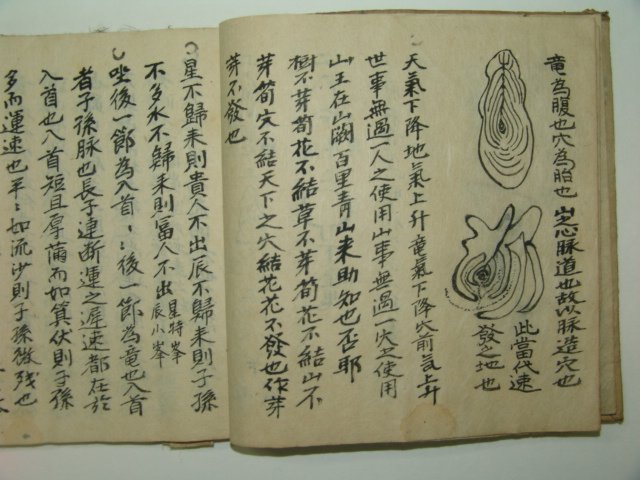 竜為腹也穴為胎也山之心脉道也故以脉道穴也
此當代速
發之地也
天氣下降地氣上升竜氣下降穴前气上升
世事無過一人之使用山事無過一穴之使用
山王在山濶百里青山来助知也否耶
樹不芽筍花不結草不芽筍花不結山不
芽筍穴不結天下之穴結花花不發也作芽
芽不發也
星不歸来則貴人不出辰不歸来則子孫
不多水不歸来則富人不出星特峯
辰小峯
坐後一節為入首〻後一節為竜也入首
者子孫脉也長子逮断運之遲速都在於
入首也入首短且厚莆而如算伏則子孫
多而運速也平〻如流沙則子孫微残也